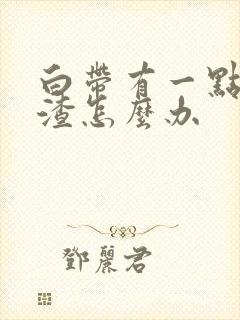 白帶有一點
渣怎麼办
鄧麗君